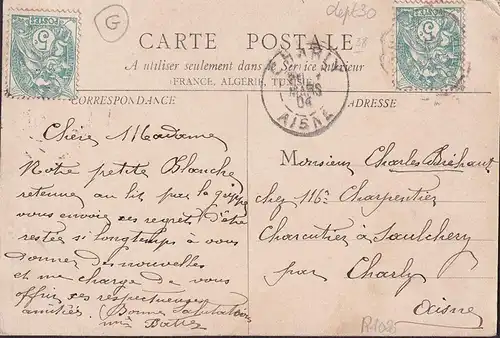 G
dept 30
CARTE POSTALE
A utiliser seulement dans le Service intérieur
FRANCE, ALGERIE, TUNISIE
CORRESPONDANCE
ADRESSE
MARS
04
AISNE
5
5
Chère Madame
Notre petite Blanche
retenue au lit par la grippe
vous envoie ses regrets d'être
restée si longtemps à vous
donner des nouvelles
et me charge de vous
offrir ses respectueuses
amitiés. (Bonne Salutation
Monsieur Charles
chez Mr Charpentier
Charcutier à Saulchery
par Charly
Aisne